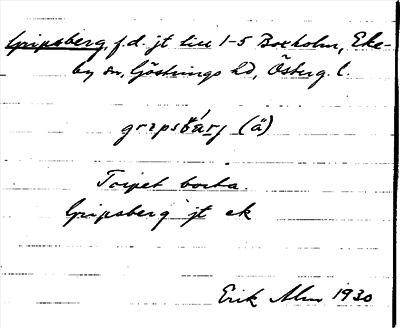 Gripsberg, f.d. jt till 1-5 Boxholm, Eke-
by sn, Göstrings hd, Österg. l.
gripsbärj (ä)
Torpet borta.
Gripsberg jt ek
Erik Alm 1930